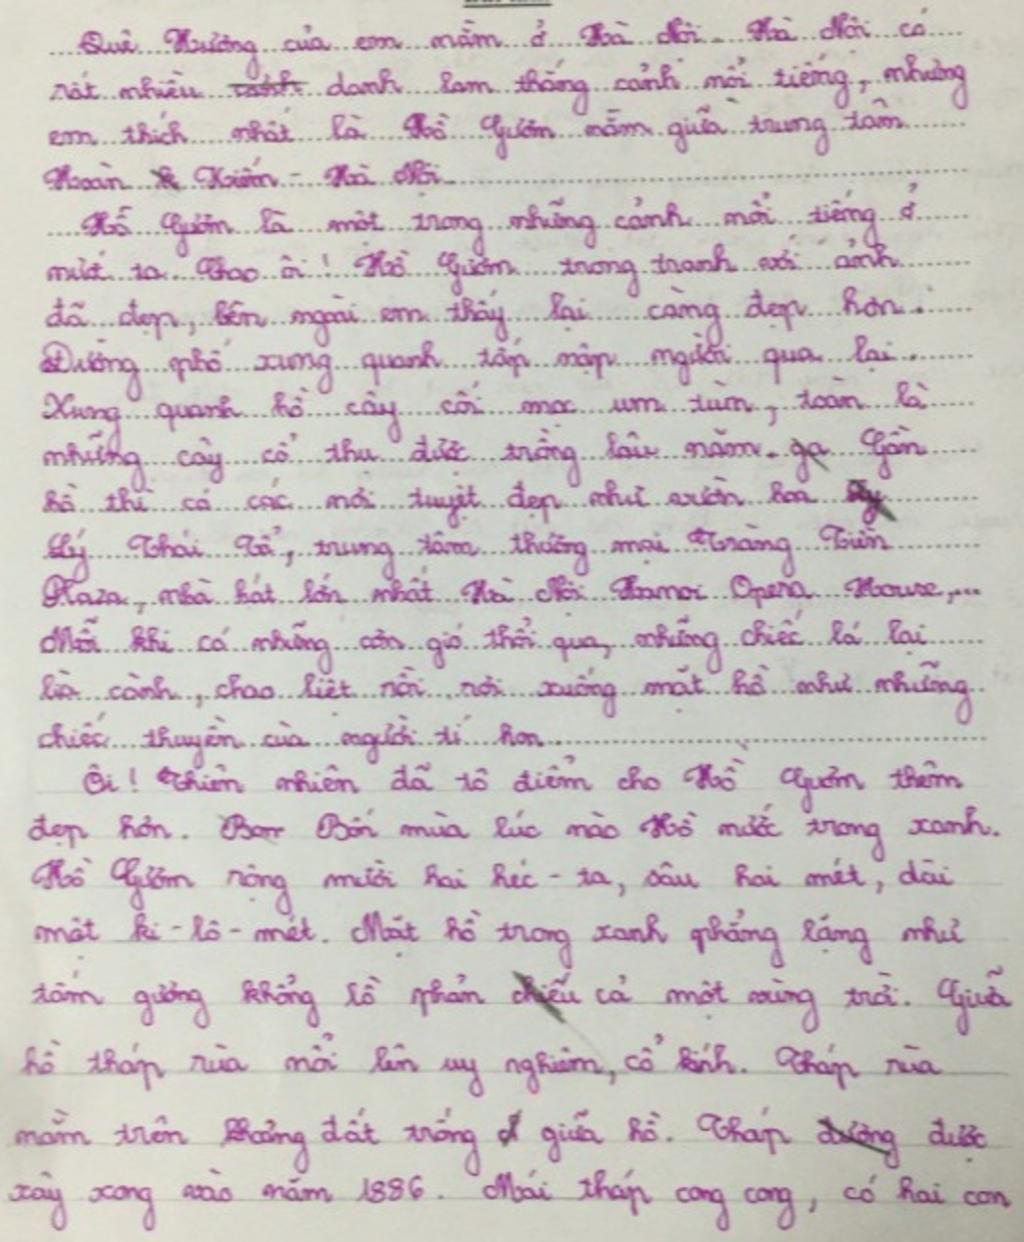 Quê Hương của em nằm ở Hà Nội. Hà Nội có
rất nhiều cảnh danh lam thắng cảnh nổi tiếng, nhưng
em thích nhất là Hồ Gươm nằm giữa trung tâm
Hoàn Kiếm - Hà Nội.
Hồ Gươm là một trong những cảnh nổi tiếng ở
nước ta. Chao ôi! Hồ Gươm trong tranh với ảnh
đã đẹp, bên ngoài em thấy lại càng đẹp hơn.
Đường phố xung quanh tấp nập người qua lại.
Xung quanh hồ cây cối mọc um tùm, toàn là
những cây cổ thụ được trồng lâu năm. Gần
hồ thì có các nơi tuyệt đẹp như vườn hoa
Lý Thái Tổ, trung tâm thương mại Tràng Tiền
Plaza, nhà hát lớn nhất Hà Nội Hanoi Opera House,...
Mỗi khi có những cơn gió thổi qua, những chiếc lá lại
lìa cành, chao liệt rồi rơi xuống mặt hồ như những
chiếc thuyền của người tí hon.
Ôi! Thiên nhiên đã tô điểm cho Hồ Gươm thêm
đẹp hơn. Bốn mùa lúc nào Hồ nước trong xanh.
Hồ Gươm rộng mười hai héc-ta, sâu hai mét, dài
một ki-lô-mét. Mặt hồ trong xanh phẳng lặng như
tấm gương khổng lồ phản chiếu cả một vùng trời. Giữa
hồ tháp rùa nổi lên uy nghiêm, cổ kính. Tháp rùa
nằm trên khoảng đất trống ở giữa hồ. Tháp đường được
xây xong vào năm 1886. Mái tháp cong cong, có hai con